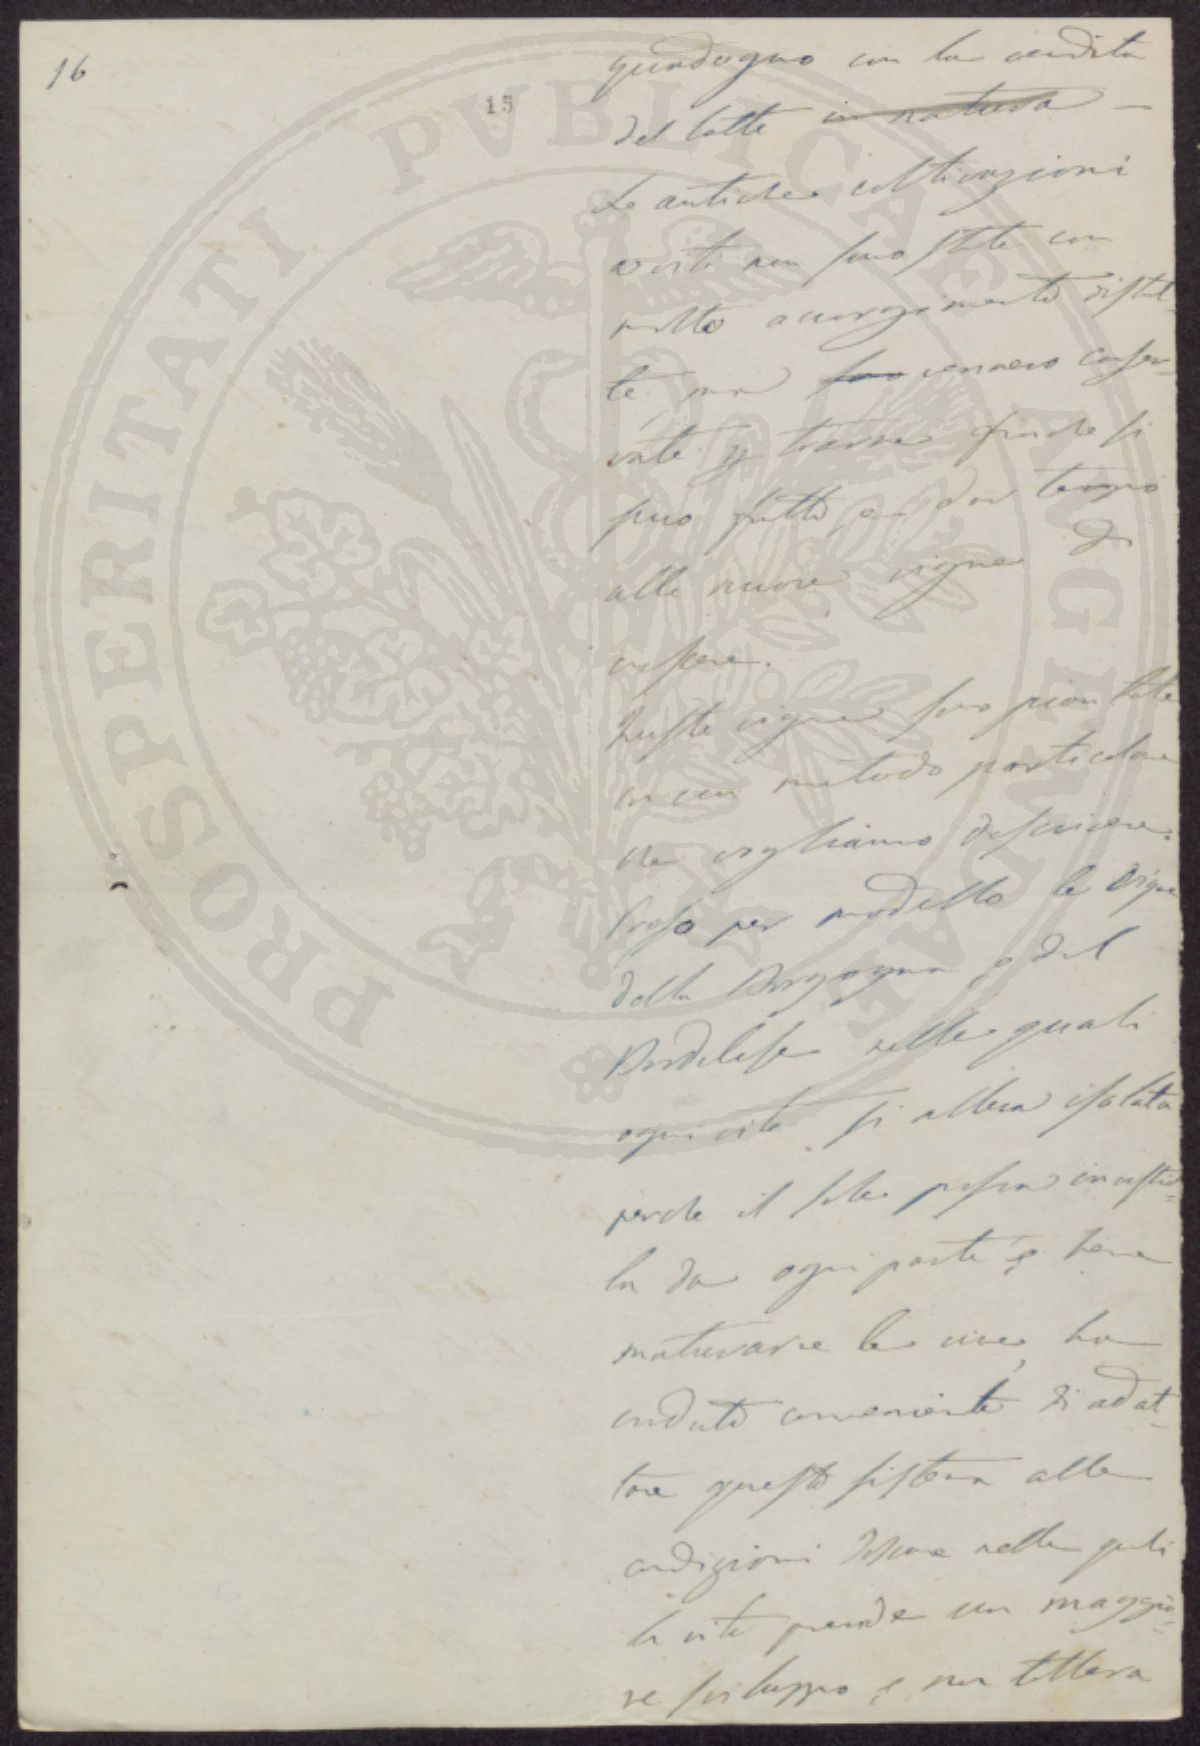 16
15
guadagno con la vendita
del latte in natura —
Le antiche coltivazioni
a viti non sono state con
molto accorgimento distrut-
te ma sono vennero conser-
vate p trarne finche si
puo frutto e dar tempo
alle nuove vigne di
crescere.
Queste vigne sono piantate
con un metodo particolare
che vogliamo descrivere.
Preso per modello le vigne
della Borgogna e del
Bordolese nelle quali
ogni vite si alleva isolata
perche il sole possa investir-
la da ogni parte e bene
maturare le uve, ha
creduto conveniente di adat-
tare questo sistema alle
condizioni Toscane nelle quali
la vite prende un maggio-
re sviluppo e non tollera
PROSPERITATI PVBLICAE AVGENDAE